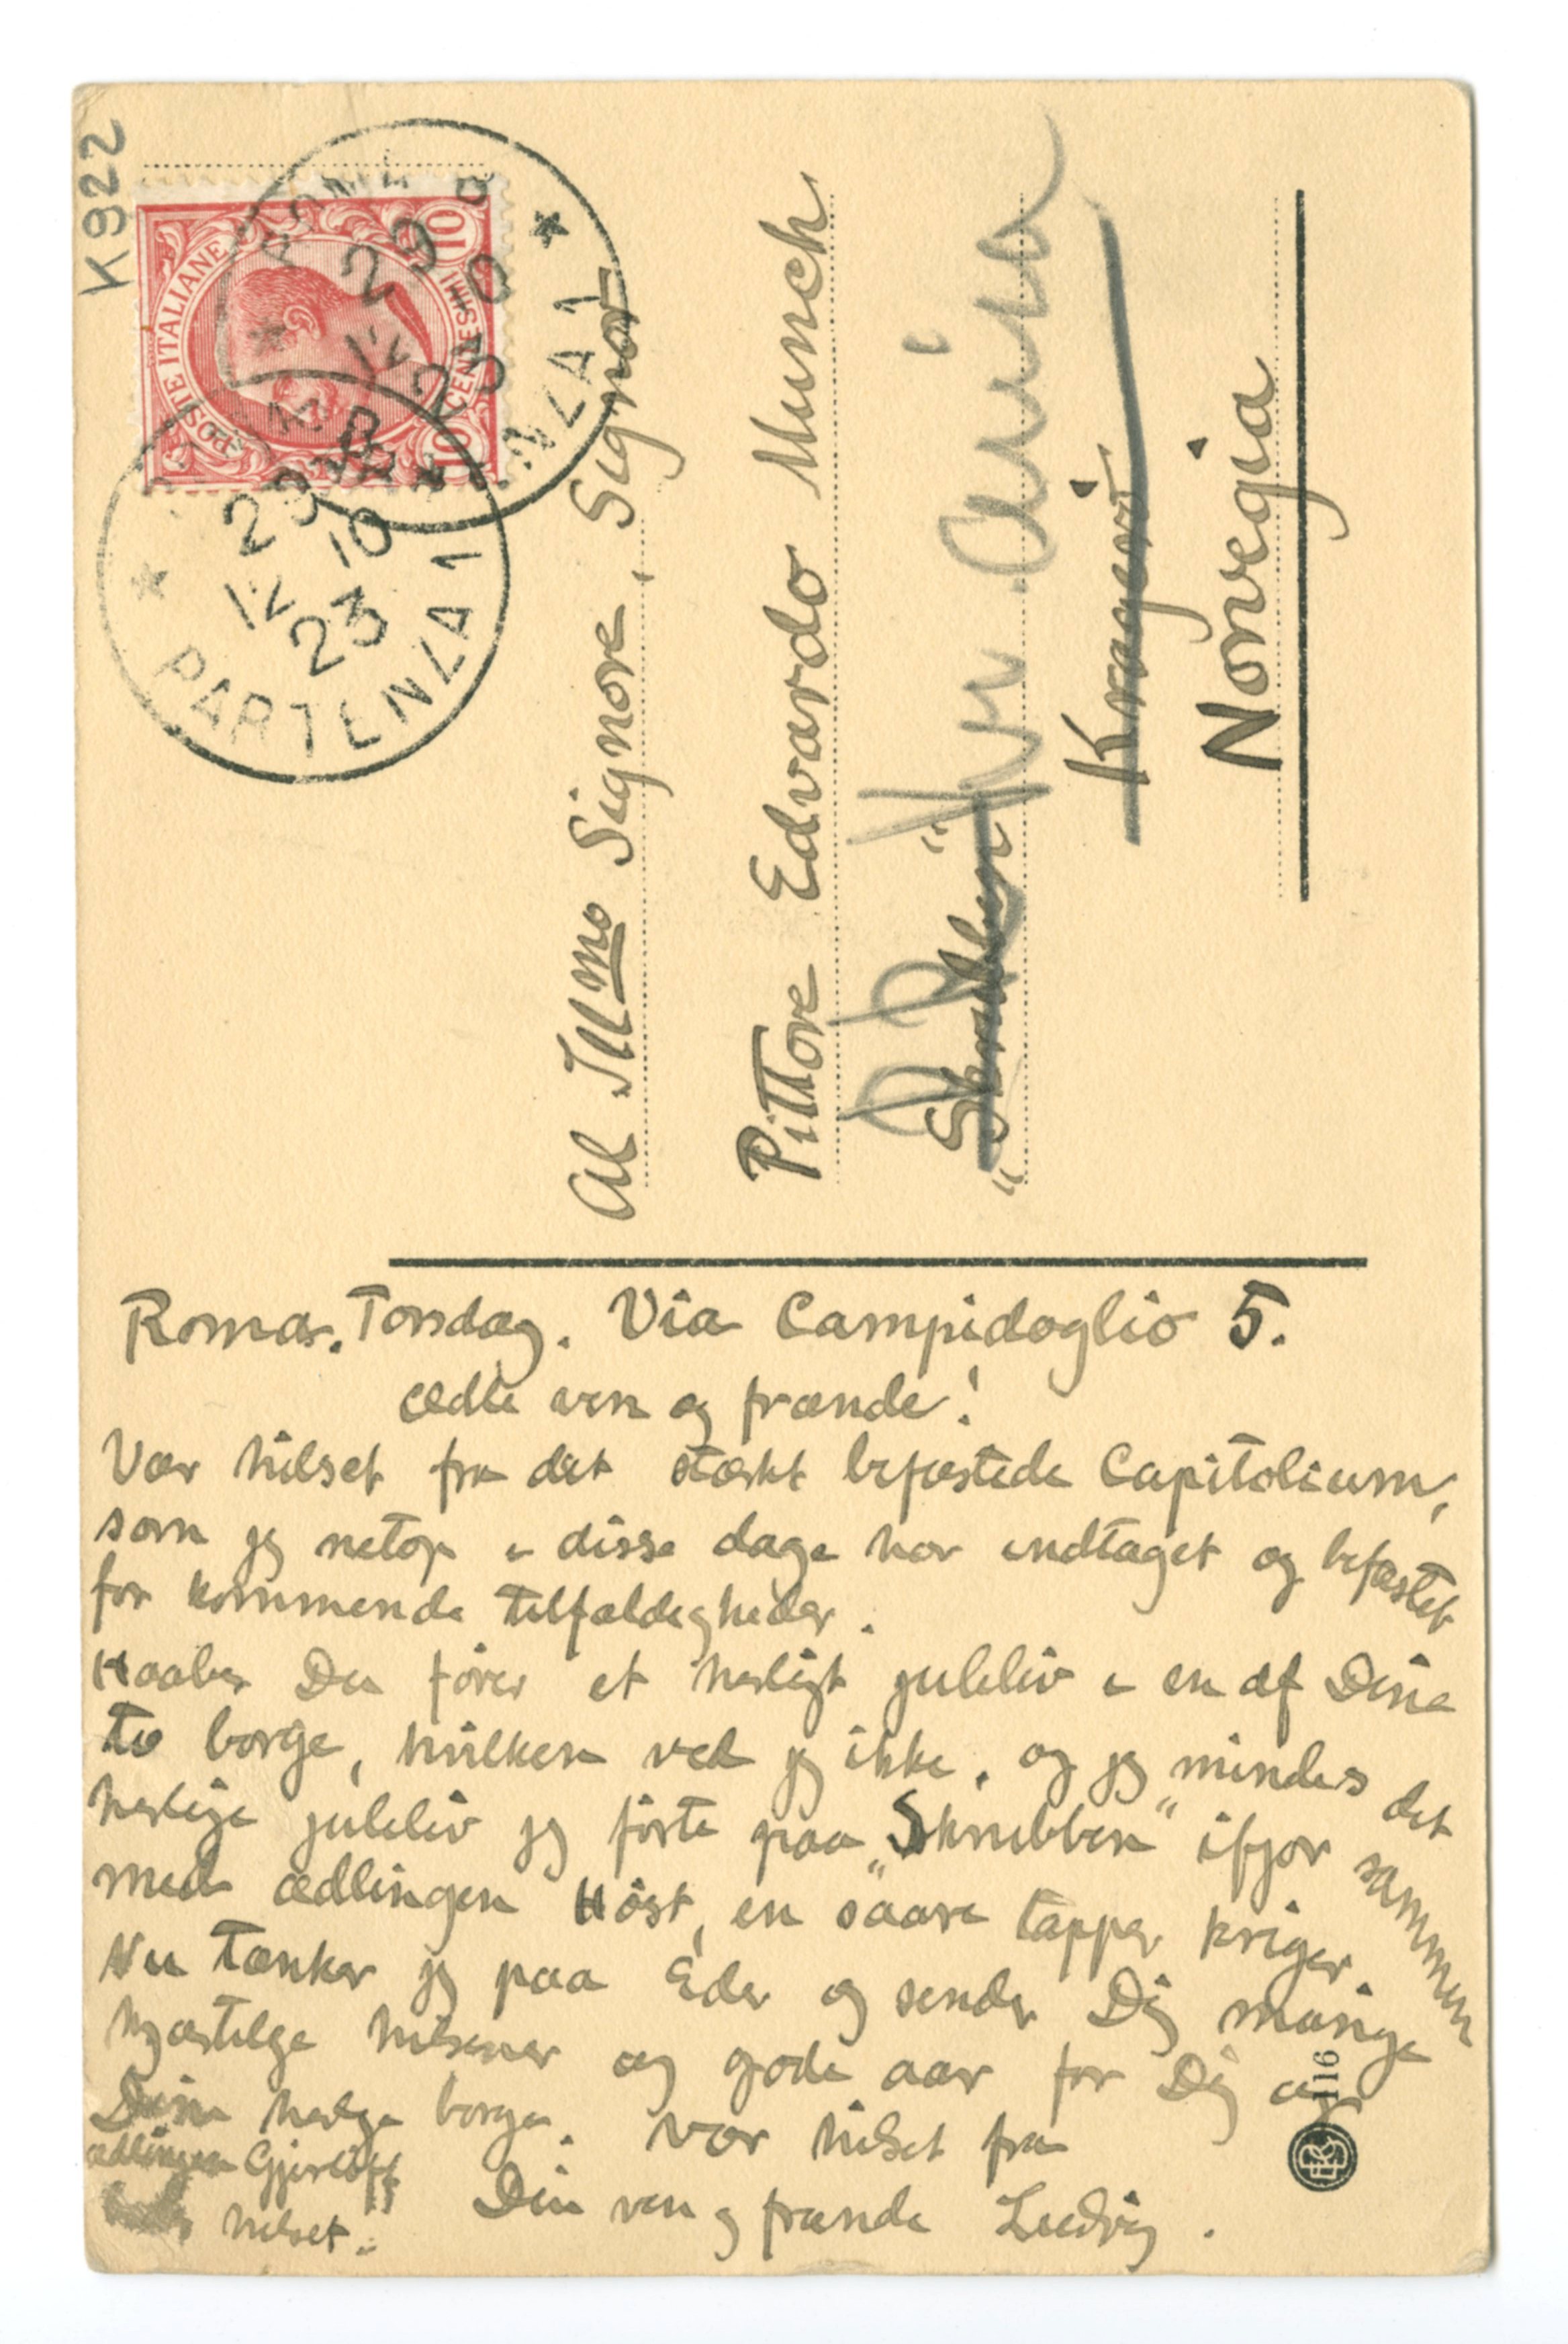 K922
POSTE ITALIANE
10 CENTESIMI 10
29 12 10 23
PARTENZA 1
29 12 10 23
Al Illmo Signore, Signor
Pittore Edvardo Munch
"Skrubben"
Kragerø
Norvegia
Roma. Torsdag. Via Campidoglio 5.
Ædle ven og frænde!
Vær hilset fra det stærkt befæstede Capitolium,
som jeg netop i disse dage har indtaget og befæstet
for kommende tilfældigheder.
Haaber Du fører et herligt juleliv i en af Dine
to borge, hvilken ved jeg ikke, og jeg mindes det
herlige juleliv jeg førte paa „Skrubben" ifjor sammen
med ædlingen Høst, en saare tapper kriger.
Nu tænker jeg paa Eder og sender Dig mange
hjærtelige hilsener og gode aar for Dig og
Dine helge borge. Vær hilset fra
ædlingen Gjerløff
hilset. Din ven og frænde Ludvig.
116